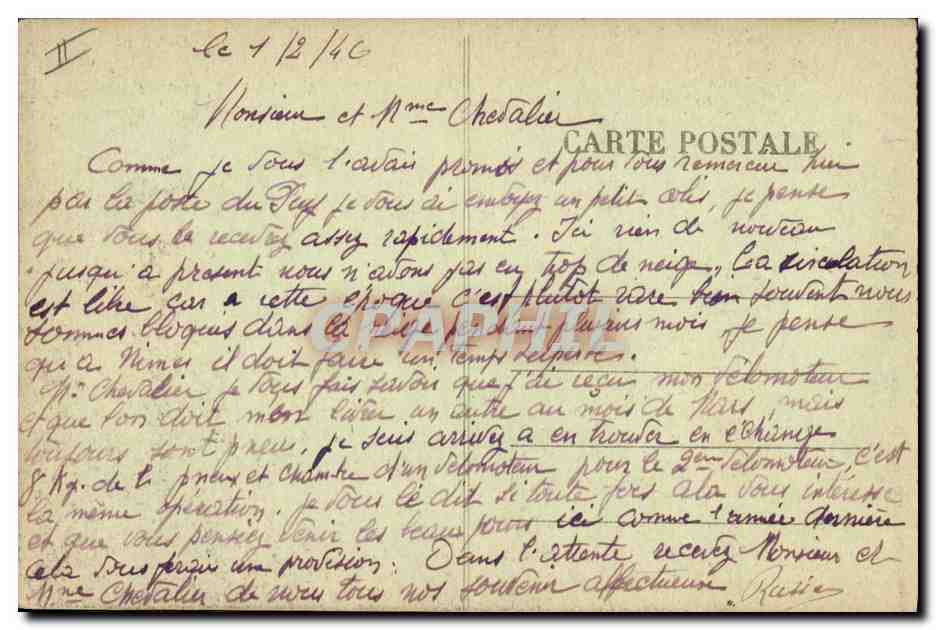 II
le 1/2/46
Monsieur et Mme Chevalier
CARTE POSTALE
Comme je vous l'avais promis et pour vous remercier hier
par la poste du Puy je vous ai envoyez un petit colis, je pense
que vous le recevrez assez rapidement. Ici rien de nouveau
jusqu'a present nous n'avons pas eu trop de neige, la circulation
est libre car a cette époque c'est plutot rare bien souvent nous
sommes bloqués dans la neige pendant plusieurs mois, je pense
qu'a Nimes il doit faire un temps superbe.
Mr Chevalier je vous fais savoir que j'ai reçu mon velomoteur
et que l'on doit men livrer un autre au mois de Mars, mais
toujours sont pneu, je suis arrivez a en trouver en echange
8 Kg. de pneux et chambre d'un velomoteur pour le 2em velomoteur, c'est
la même opération. je vous le dit si toute fois cela vous intéresse
et que vous pensiez venir les beaux jours ici comme l'année dernière
cela vous ferais une provision. Dans l'attente recevez Monsieur et
Mme Chevalier de nous tous nos souvenir affectueux
CPAPHIL